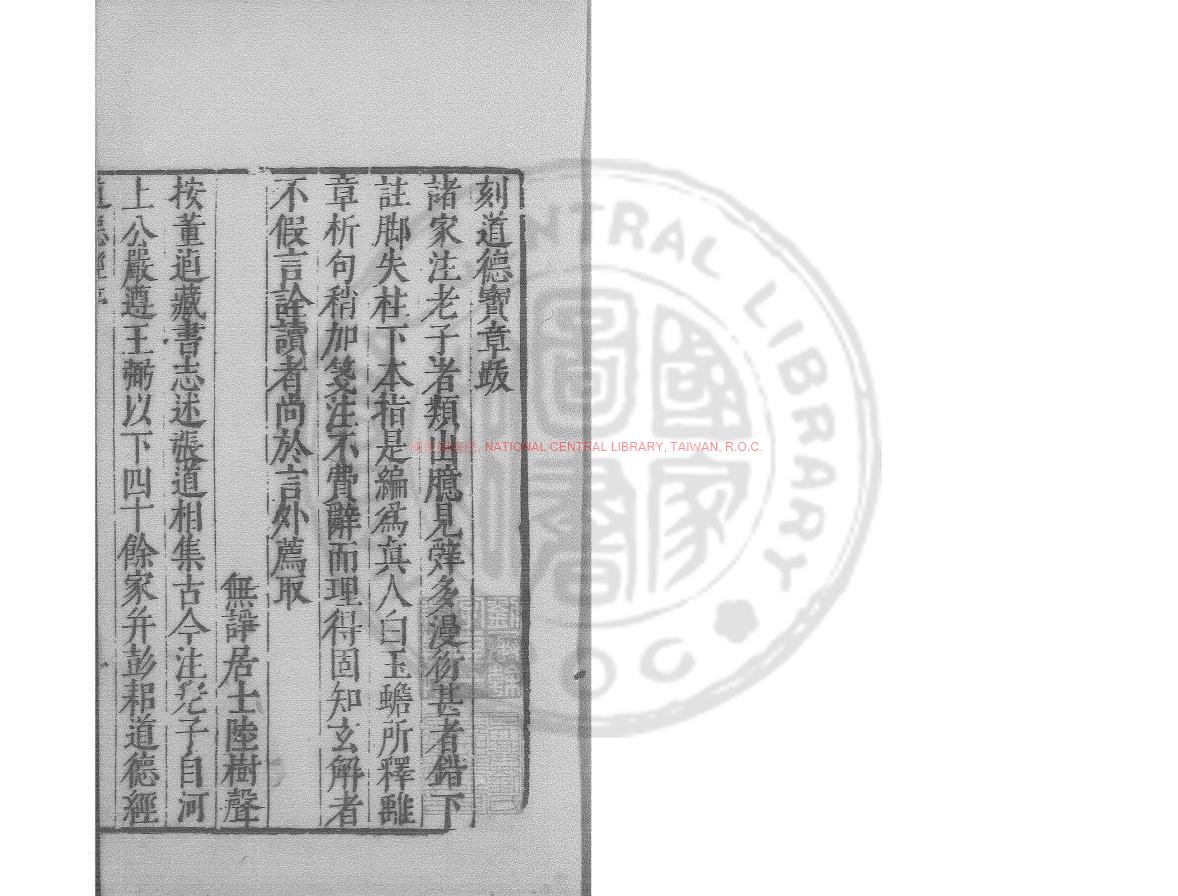 刻道德寳章䟦
諸家注老子者類出臆見辭多漫衍甚者錯下
註脚失柱下本指是編爲真人白玉蟾所釋雖
章析句稍加箋注不費辭而理得固知玄解者
不假言詮讀者尚於言外薦取
無諍居士陸樹聲
按董逌藏書志述張道相集古今注老子自河
上公嚴遵王弼以下四十餘家并彭耜道德經
NATIONAL CENTRAL LIBRARY, TAIWAN, R.O.C.